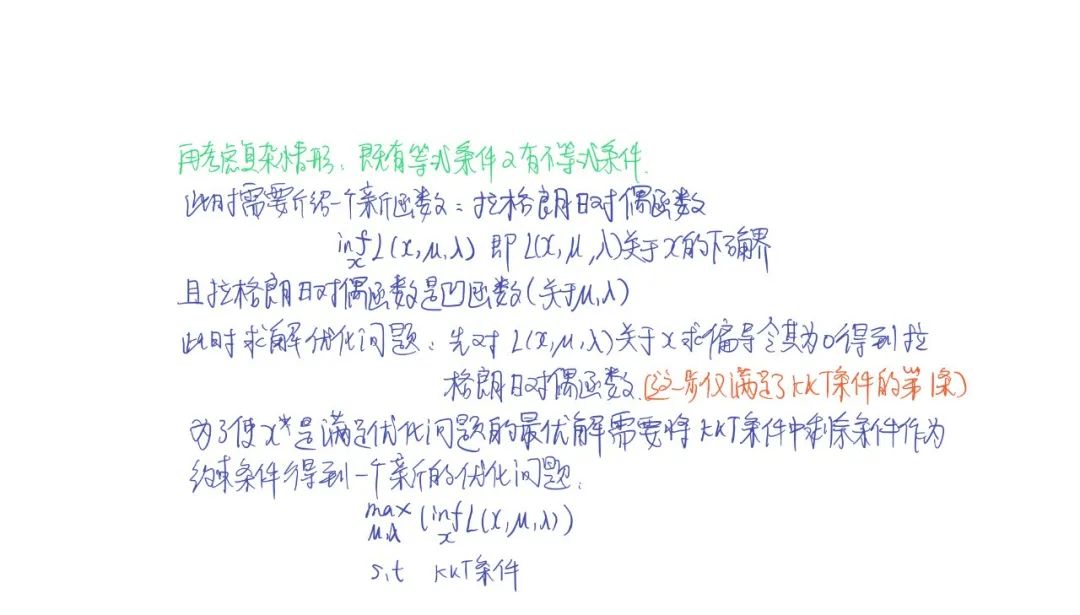 再考虑复杂情形:既有等式条件又有不等式条件.
此时需要介绍一个新函数:拉格朗日对偶函数
inf L(x,μ,λ) 即 L(x,μ,λ)关于x的下确界
x
且拉格朗日对偶函数是凹函数(关于μ,λ)
此时求解优化问题:先对 L(x,μ,λ)关于x求偏导令其为0得到拉
格朗日对偶函数.(这一步仅满足了KKT条件的第1条)
为了使x*是满足优化问题的最优解需要将KKT条件中剩余条件作为
约束条件得到一个新的优化问题:
max (inf L(x,μ,λ))
μ,λ x
s.t KKT条件